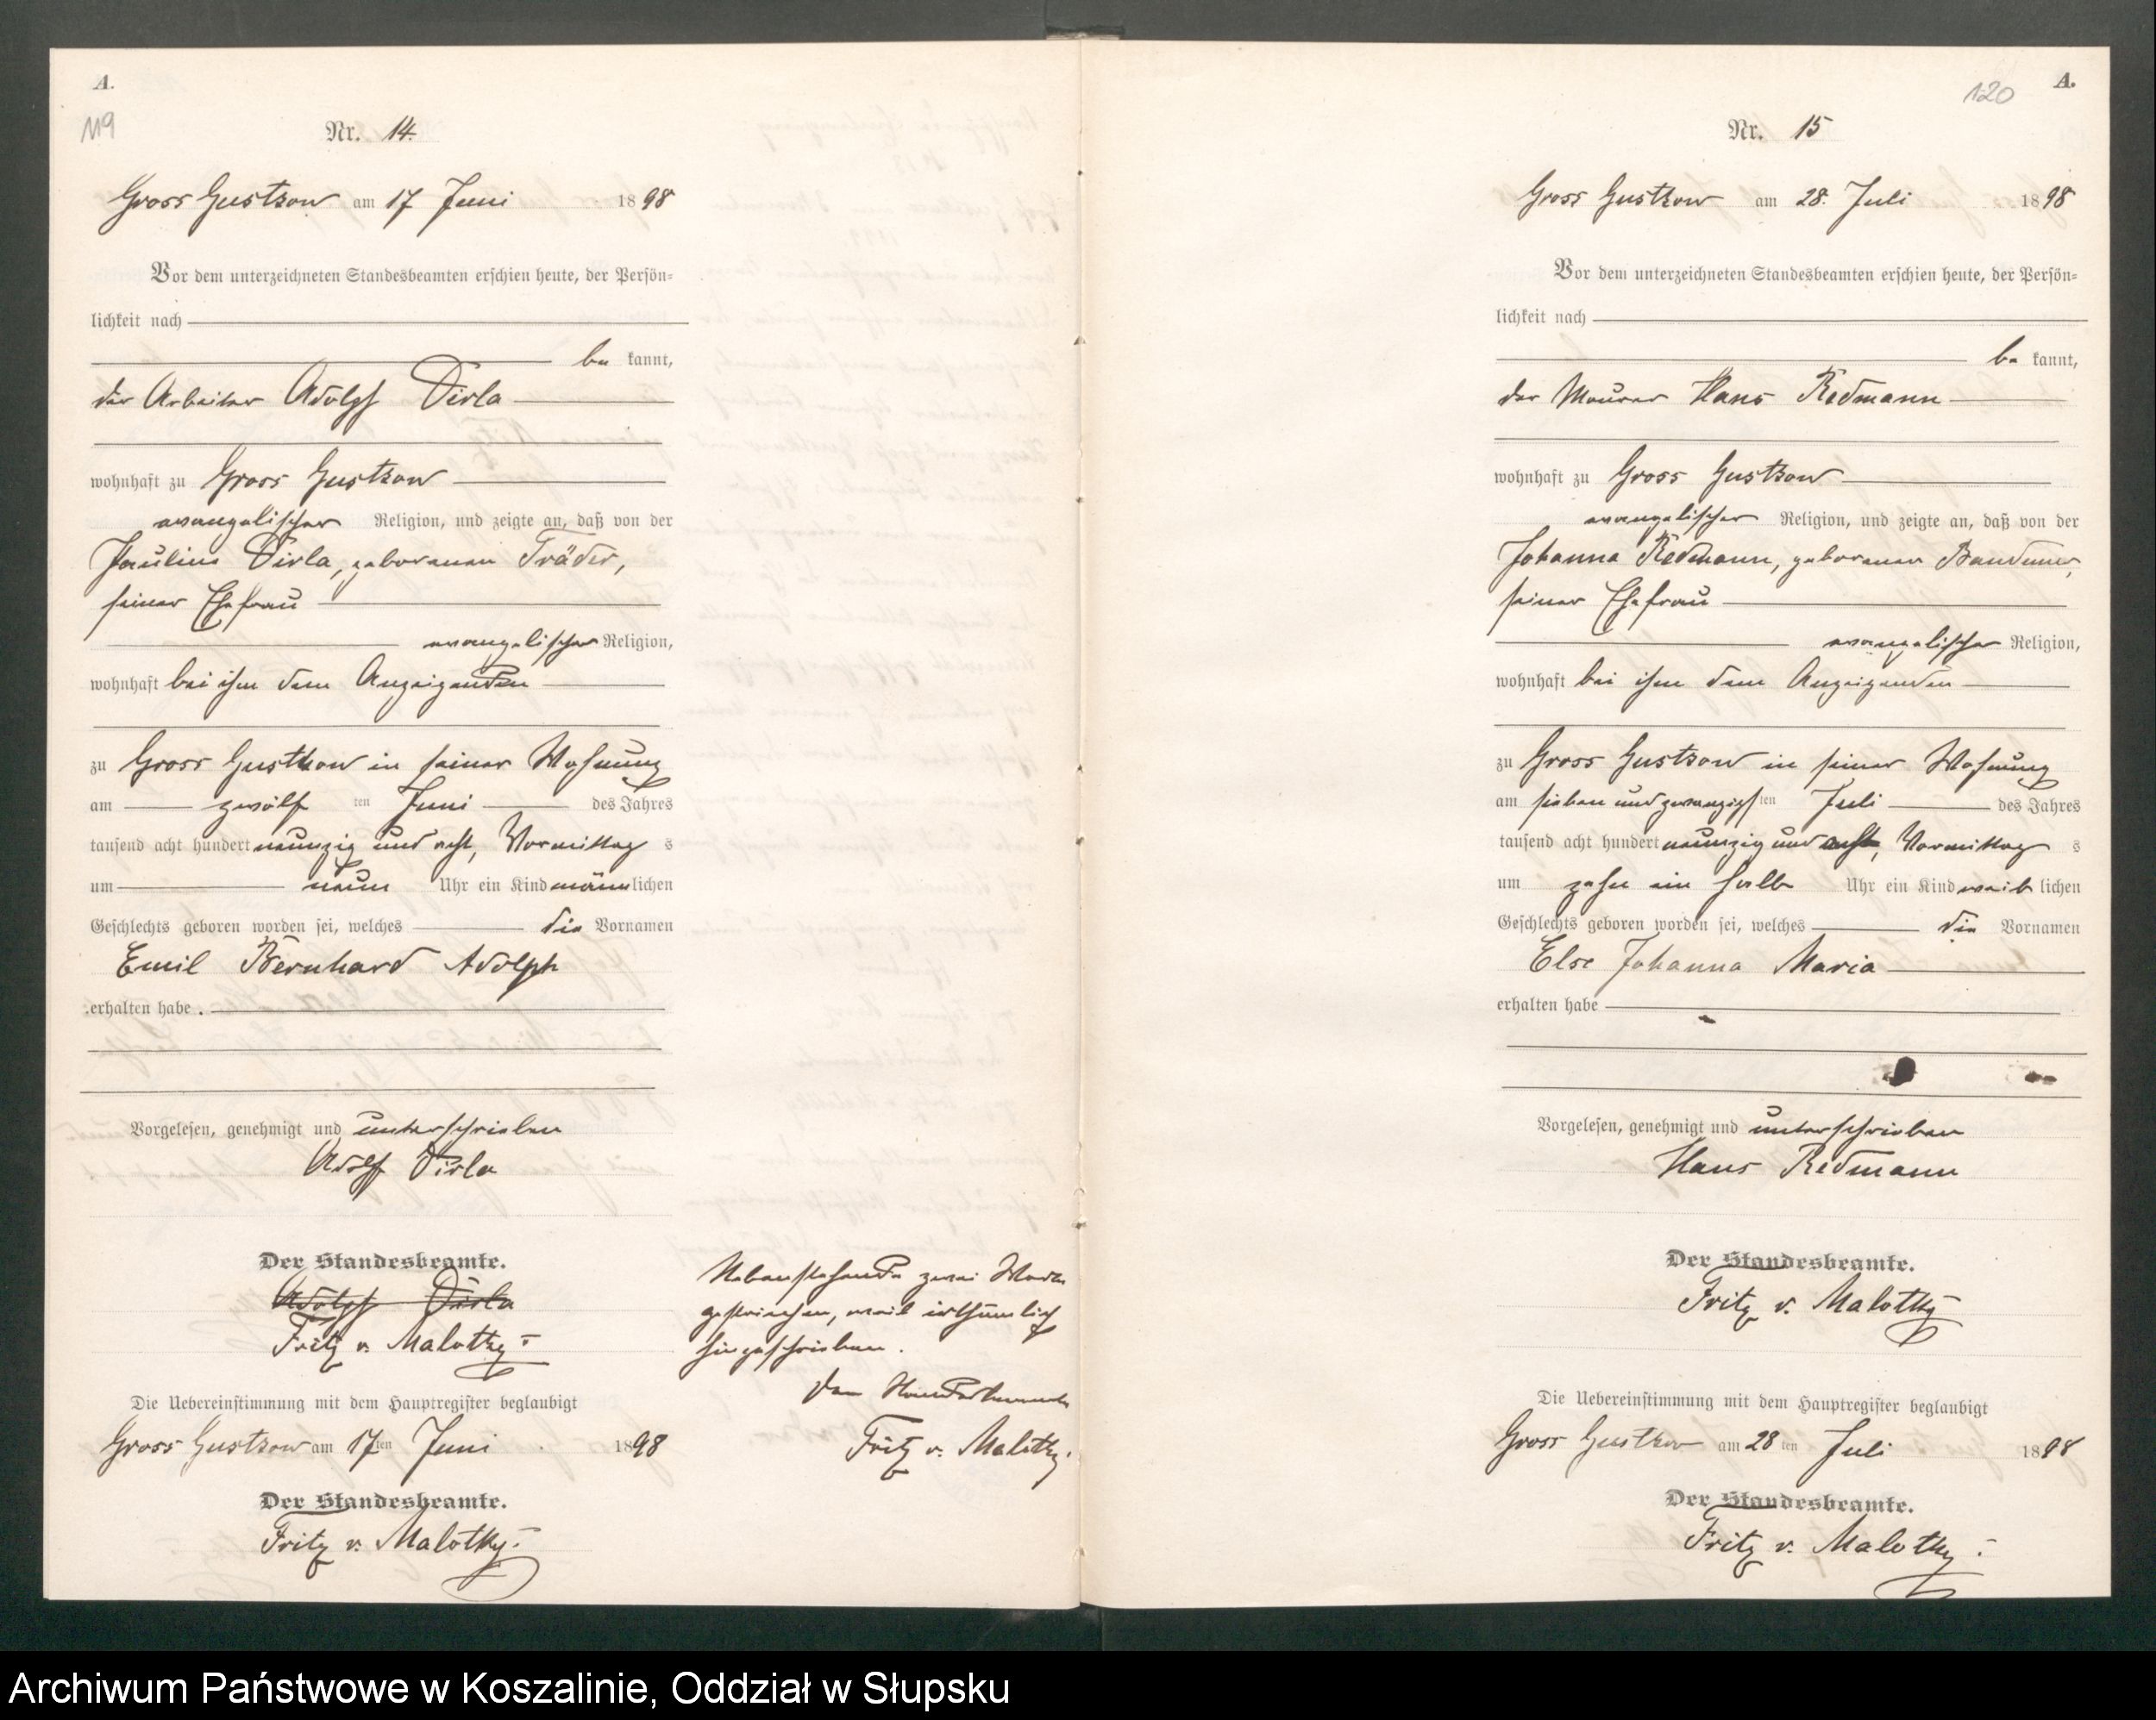 A.
119
Nr. 14.
Gross Gustkow am 17 Juni 1898
Vor dem unterzeichneten Standesbeamten erschien heute, der Persön-
lichkeit nach
be kannt,
der Arbeiter Adolph Dirla
wohnhaft zu Gross Gustkow
evangelischer Religion, und zeigte an, daß von der
Pauline Dirla, geborenen Träder,
seiner Ehefrau
evangelischer Religion,
wohnhaft bei ihm dem Anzeigenden
zu Gross Gustkow in seiner Wohnung
am zwölf ten Juni des Jahres
tausend acht hundert neunzig und acht, Vormittag s
um neun Uhr ein Kind männlichen
Geschlechts geboren worden sei, welches die Vornamen
Emil Bernhard Adolph
erhalten habe.
Vorgelesen, genehmigt und unterschrieben
Adolf Dirla
Der Standesbeamte.
Adolph Dirla
Fritz v. Malottky
Die Uebereinstimmung mit dem Hauptregister beglaubigt
Gross Gustkow am 17ten Juni 1898
Der Standesbeamte.
Fritz v. Malottky.
Nebenstehende zwei Worte
gestrichen, weil irthümlich
hingeschrieben.
Der Standesbeamte
Fritz v. Malottky.
120
A.
Nr. 15
Gross Gustkow am 28. Juli 1898
Vor dem unterzeichneten Standesbeamten erschien heute, der Persön-
lichkeit nach
be kannt,
der Maurer Hans Redmann
wohnhaft zu Gross Gustkow
evangelischer Religion, und zeigte an, daß von der
Johanna Redmann, geborener Bandemer,
seiner Ehefrau
evangelischer Religion,
wohnhaft bei ihm dem Anzeigenden
zu Gross Gustkow in seiner Wohnung
am sieben und zwanzigsten Juli des Jahres
tausend acht hundert neunzig und acht, Vormittag s
um zehn ein halb Uhr ein Kind weib lichen
Geschlechts geboren worden sei, welches die Vornamen
Else Johanna Maria
erhalten habe
Vorgelesen, genehmigt und unterschrieben
Hans Redmann
Der Standesbeamte.
Fritz v. Malottky
Die Uebereinstimmung mit dem Hauptregister beglaubigt
Gross Gustkow am 28ten Juli 1898
Der Standesbeamte.
Fritz v. Malottky.
Archiwum Państwowe w Koszalinie, Oddział w Słupsku